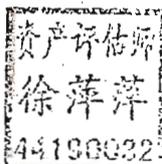 资产评估师
徐萍萍
44190032